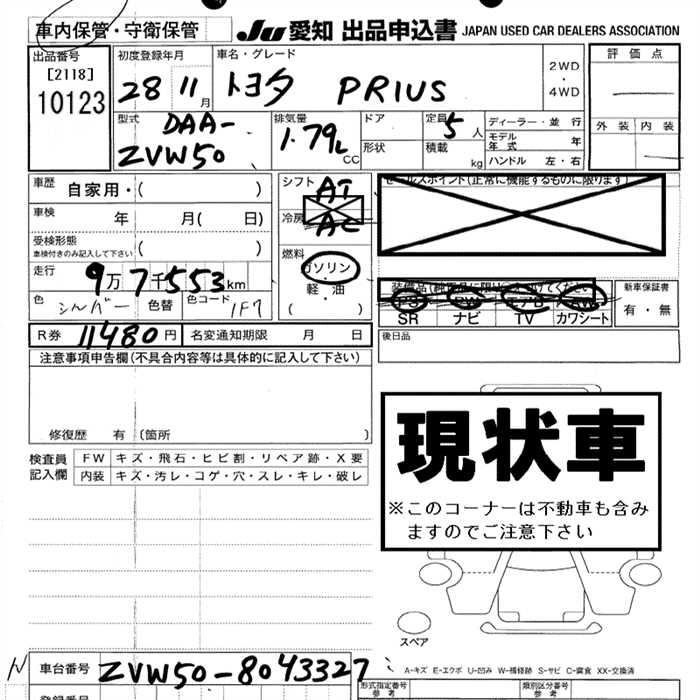 車内保管・守衛保管
JU 愛知 出品申込書 JAPAN USED CAR DEALERS ASSOCIATION
出品番号
[2118]
10123
初度登録年月
28 11月
車名・グレード
トヨタ PRIUS
2WD
・
4WD
評価点
外装 内装
型式
DAA-
ZVW50
排気量
1.79L
CC
ドア
形状
定員 5人
積載 kg
ディーラー・並行
モデル
年式 年
ハンドル 左・右
車歴 自家用・( )
車検 年 月( 日)
受検形態
車検付きのみ記入して下さい ( )
走行
9万7千553km
色 シルバー 色替 色コード 1F7
シフト AT
冷房 AC
燃料
ガソリン
・
軽・油
( )
セールスポイント(正常に機能するものに限ります)
装備品(純正品に限り○を付けてください)
PS PW エアB AW
SR ナビ TV カワシート
新車保証書
有・無
R券 11480円 名変通知期限 月 日
後日品
注意事項申告欄(不具合内容等は具体的に記入して下さい)
修復歴 有 〔箇所 〕
検査員
記入欄
FW キズ・飛石・ヒビ割・リペア跡・X要
内装 キズ・汚レ・コゲ・穴・スレ・キレ・破レ
現状車
※このコーナーは不動車も含み
ますのでご注意下さい
スペア
A-キズ E-エクボ U-凹み W-補修跡 S-サビ C-腐食 XX-交換済
車台番号 ZVW50-8043327
形式指定番号
参考
類別区分番号
参考
登録番号